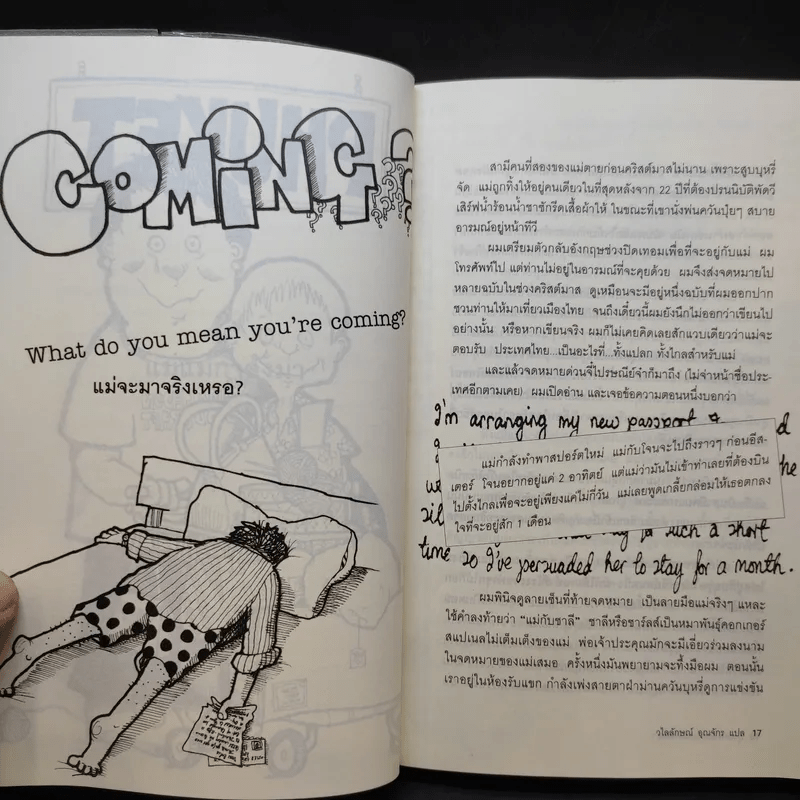 COMING
What do you mean you're coming?
แม่จะมาจริงเหรอ?
สามีคนที่สองของแม่ตายก่อนคริสต์มาสไม่นาน เพราะสูบบุหรี่
จัด แม่ถูกทิ้งให้อยู่คนเดียวในที่สุดหลังจาก 22 ปีที่ต้องปรนนิบัติพัดวี
เสิร์ฟน้ำร้อนน้ำชาซักรีดเสื้อผ้าให้ ในขณะที่เขานั่งพ่นควันปุ๋ยๆ สบาย
อารมณ์อยู่หน้าทีวี
ผมเตรียมตัวกลับอังกฤษช่วงปิดเทอมเพื่อที่จะอยู่กับแม่ ผม
โทรศัพท์ไป แต่ท่านไม่อยู่ในอารมณ์ที่จะคุยด้วย ผมจึงส่งจดหมายไป
หลายฉบับในช่วงคริสต์มาส ดูเหมือนจะมีอยู่หนึ่งฉบับที่ผมออกปาก
ชวนท่านให้มาเที่ยวเมืองไทย จนถึงเดี๋ยวนี้ผมยังนึกไม่ออกว่าเขียนไป
อย่างนั้น หรือหากเขียนจริง ผมก็ไม่เคยคิดเลยสักแวบเดียวว่าแม่จะ
ตอบรับ ประเทศไทย...เป็นอะไรที่...ทั้งแปลก ทั้งไกลสำหรับแม่
และแล้วจดหมายด่วนจี๋ไปรษณีย์จำก็มาถึง (ไม่จ่าหน้าชื่อประ-
เทศอีกตามเคย) ผมเปิดอ่าน และเจอข้อความตอนหนึ่งบอกว่า
I'm arranging my new passport &
แม่กำลังทำพาสปอร์ตใหม่ แม่กับโจนจะไปถึงราวๆ ก่อนอีส-
เตอร์ โจนอยากอยู่แค่ 2 อาทิตย์ แต่แม่ว่ามันไม่เข้าท่าเลยที่ต้องบิน
ไปตั้งไกลเพื่อจะอยู่เพียงแค่ไม่กี่วัน แม่เลยพูดเกลี้ยกล่อมให้เธอตกลง
ใจที่จะอยู่สัก 1 เดือน
for such a short
time so I've persuaded her to stay for a month.
ผมพินิจดูลายเซ็นที่ท้ายจดหมาย เป็นลายมือแม่จริงๆ แหละ
ใช้คำลงท้ายว่า "แม่กับชาลี" ชาลีหรือชาร์ลส์เป็นหมาพันธุ์คอกเกอร์
สแปเนลไม่เต็มเต็งของแม่ พ่อเจ้าประคุณมักจะมีเอี่ยวร่วมลงนาม
ในจดหมายของแม่เสมอ ครั้งหนึ่งมันพยายามจะทึ้งมือผม ตอนนั้น
เราอยู่ในห้องรับแขก กำลังเพ่งสายตาฝ่าม่านควันบุหรี่ดูการแข่งขัน
วไลลักษณ์ อุณจักร แปล 17